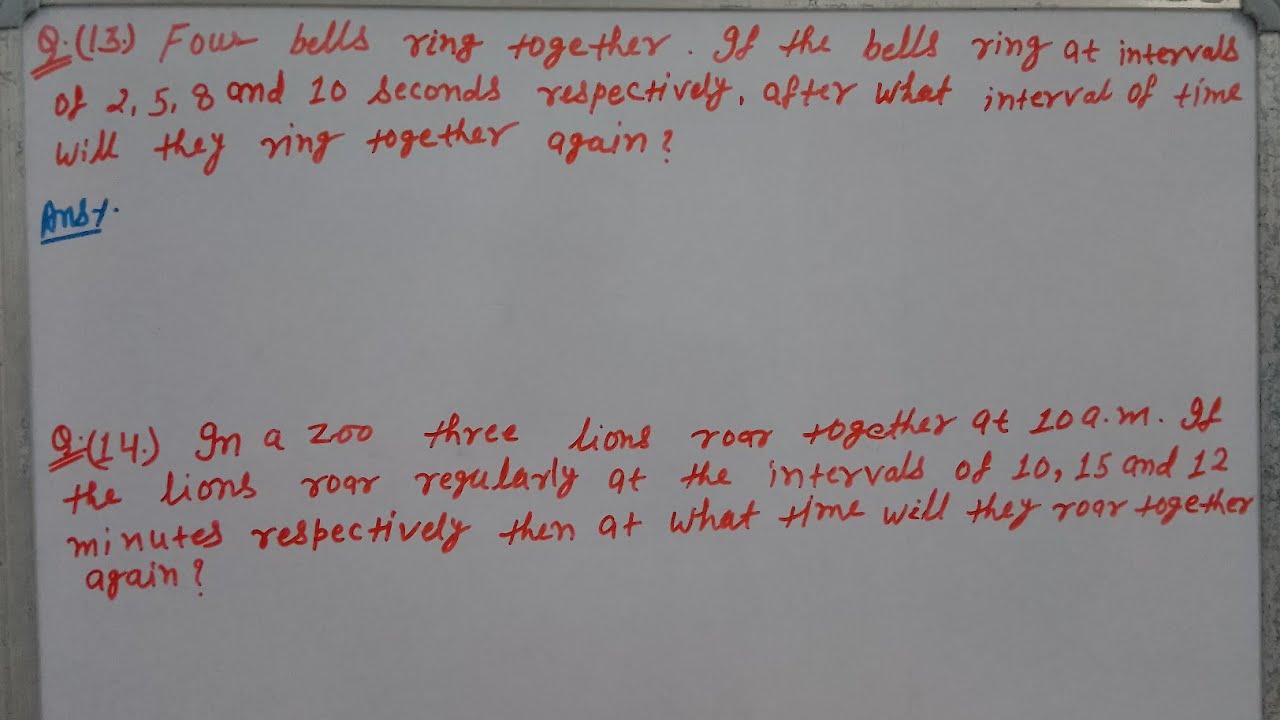 Q.(13.) Four bells ring together. If the bells ring at intervals
of 2, 5, 8 and 10 seconds respectively, after what interval of time
will they ring together again?
Ans.
Q.(14.) In a zoo three lions roar together at 10 a.m. If
the lions roar regularly at the intervals of 10, 15 and 12
minutes respectively then at what time will they roar together
again?